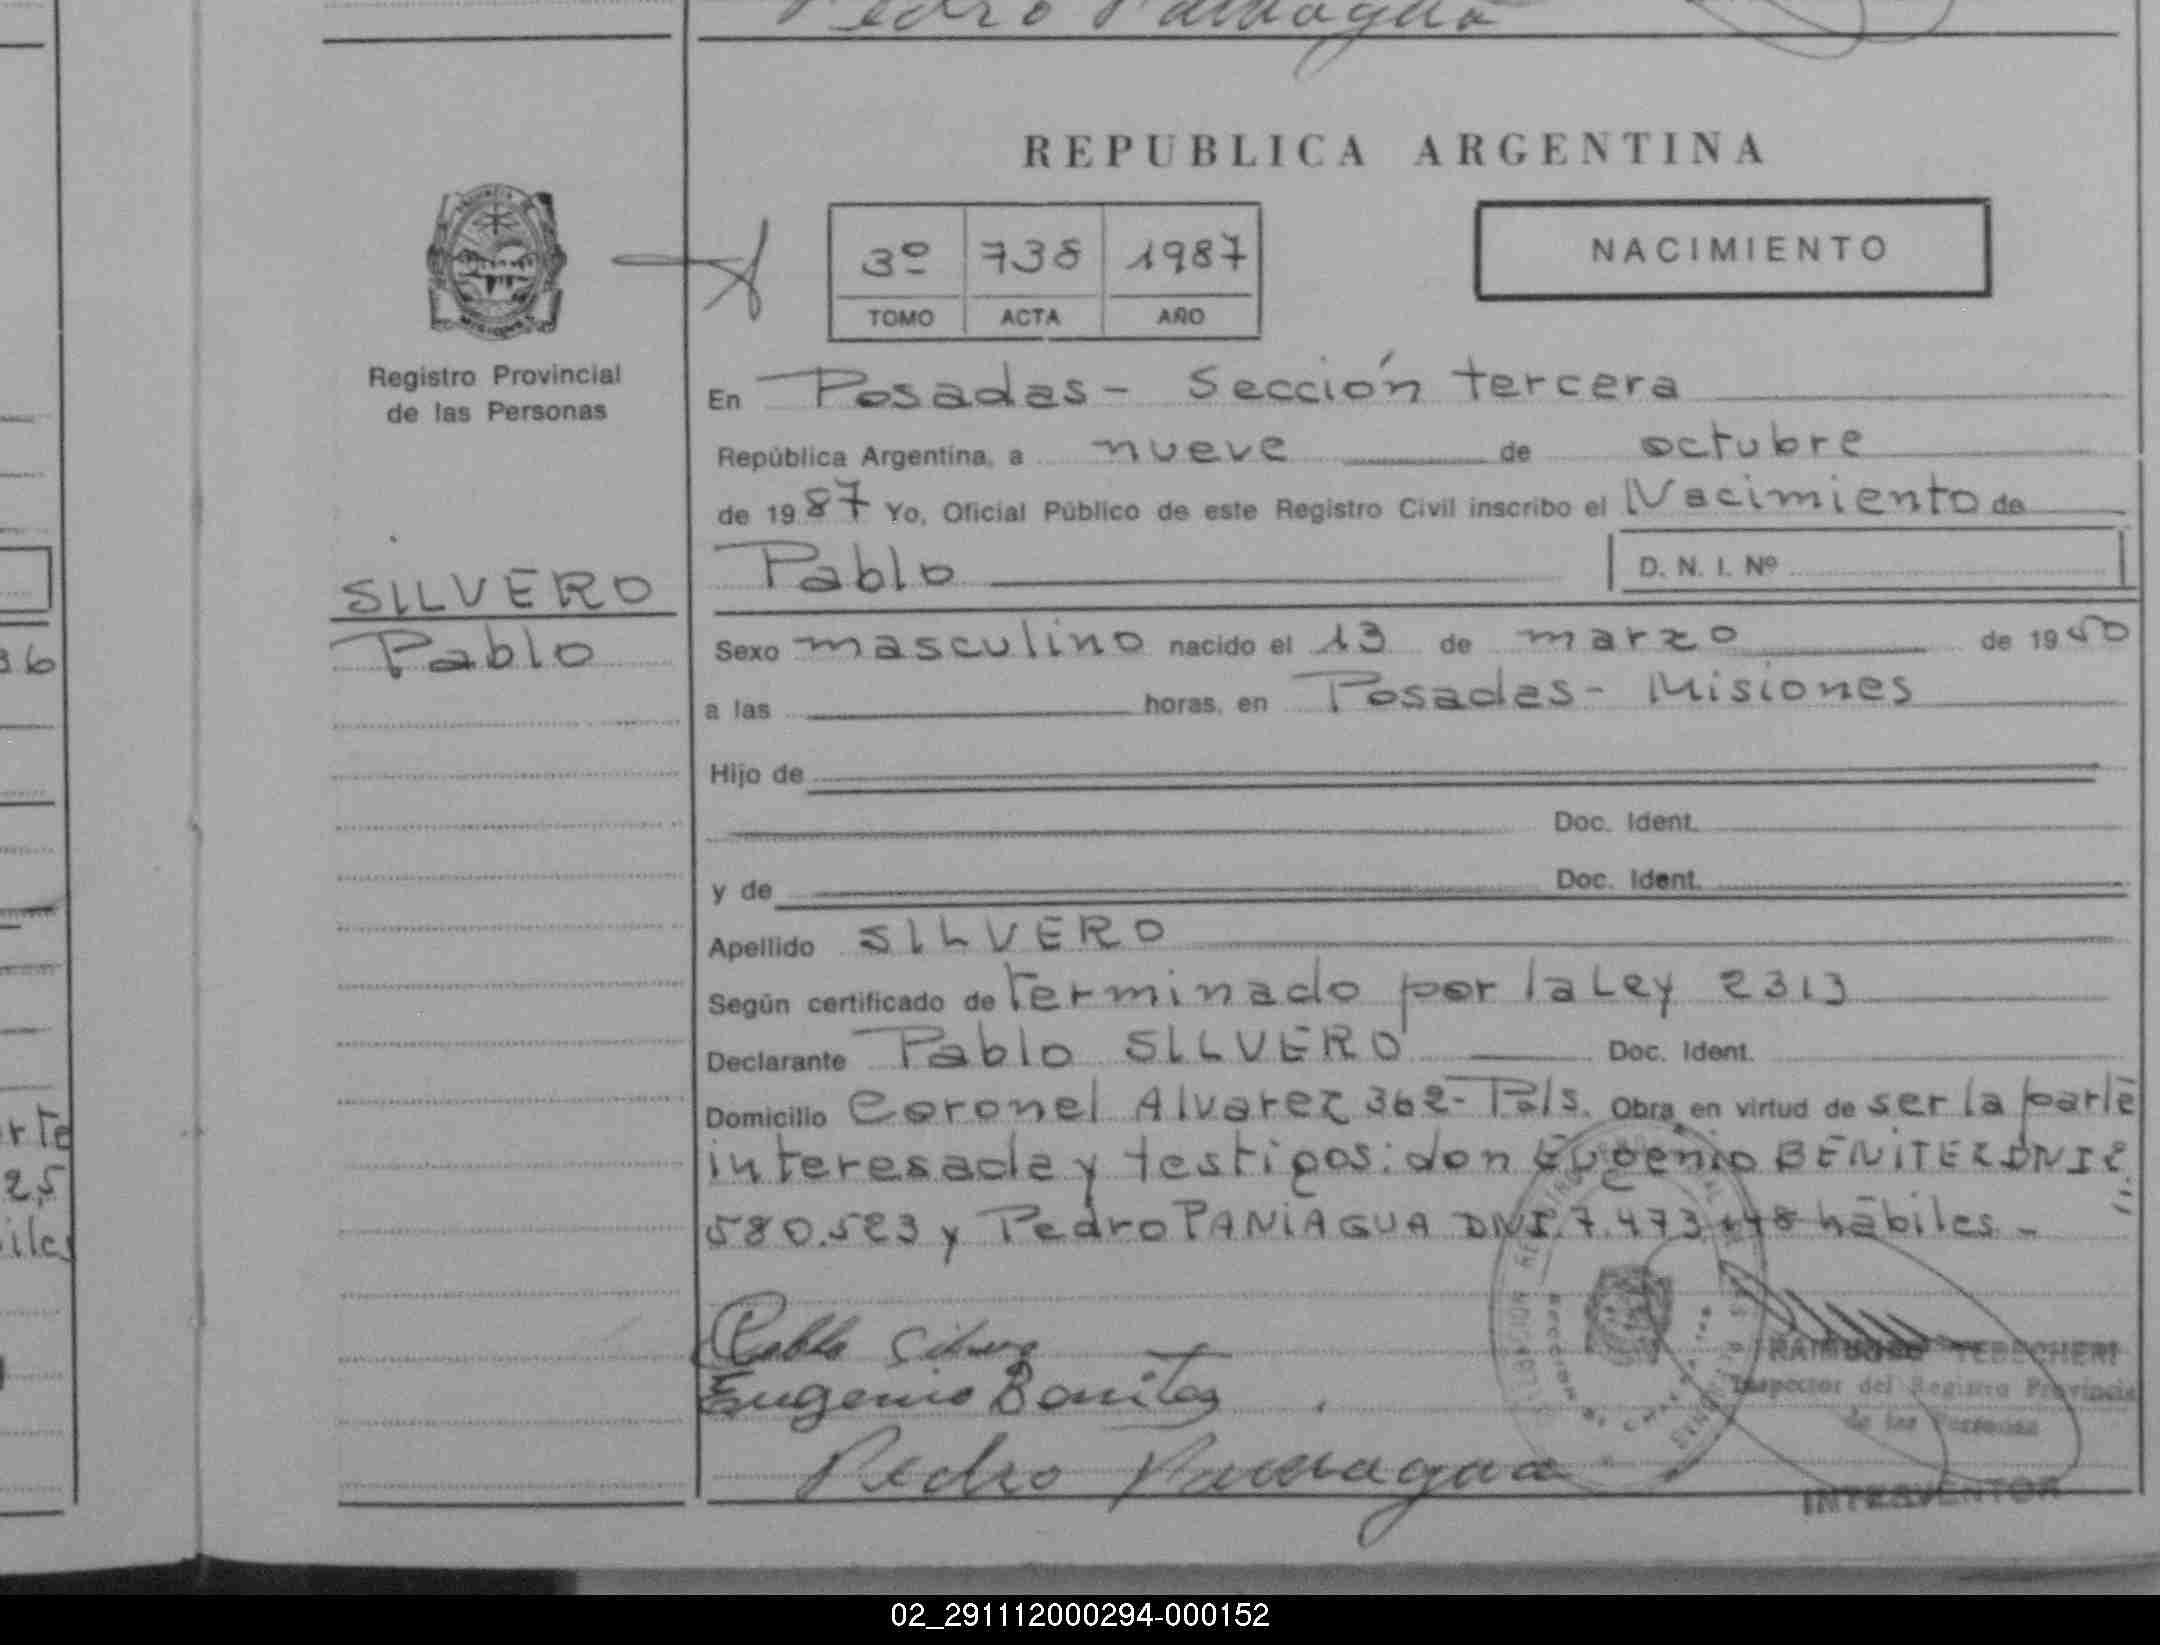 Pedro Paniagua
REPUBLICA ARGENTINA
3º 738 1987
TOMO ACTA AÑO
NACIMIENTO
Registro Provincial
de las Personas
En Posadas - Sección tercera
República Argentina, a nueve de octubre
de 1987 Yo, Oficial Público de este Registro Civil inscribo el Nacimiento de
Pablo D. N. I. Nº
SILVERO
Pablo
Sexo masculino nacido el 13 de marzo de 1950
a las horas, en Posadas - Misiones
Hijo de
Doc. Ident.
y de Doc. Ident.
Apellido SILVERO
Según certificado de terminado por la Ley 2313
Declarante Pablo SILVERO Doc. Ident.
Domicilio Coronel Alvarez 362 - Pds. Obra en virtud de ser la parte
interesada y testigos: don Eugenio BENITEZ DNI 2.
580.523 y Pedro PANIAGUA DNI. 7.473. hábiles -
Pablo Silvero
Eugenio Benitez
Pedro Paniagua
Inspector del Registro Provincial
de las Personas
INTERVENTOR
36
rte
25
iles
02_291112000294-000152